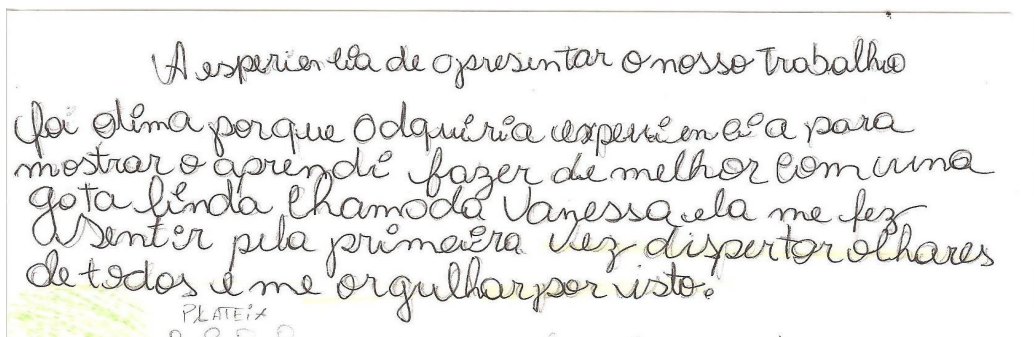 A esperiencia de apresentar o nosso trabalho
foi otima porque odquiriria experiencia para
mostrar o aprendi fazer de melhor com uma
gota linda chamoda Vanessa ela me fez
sentir pela primeira vez dispertor olhares
de todos e me orgulhar por isto.
PLATEIX